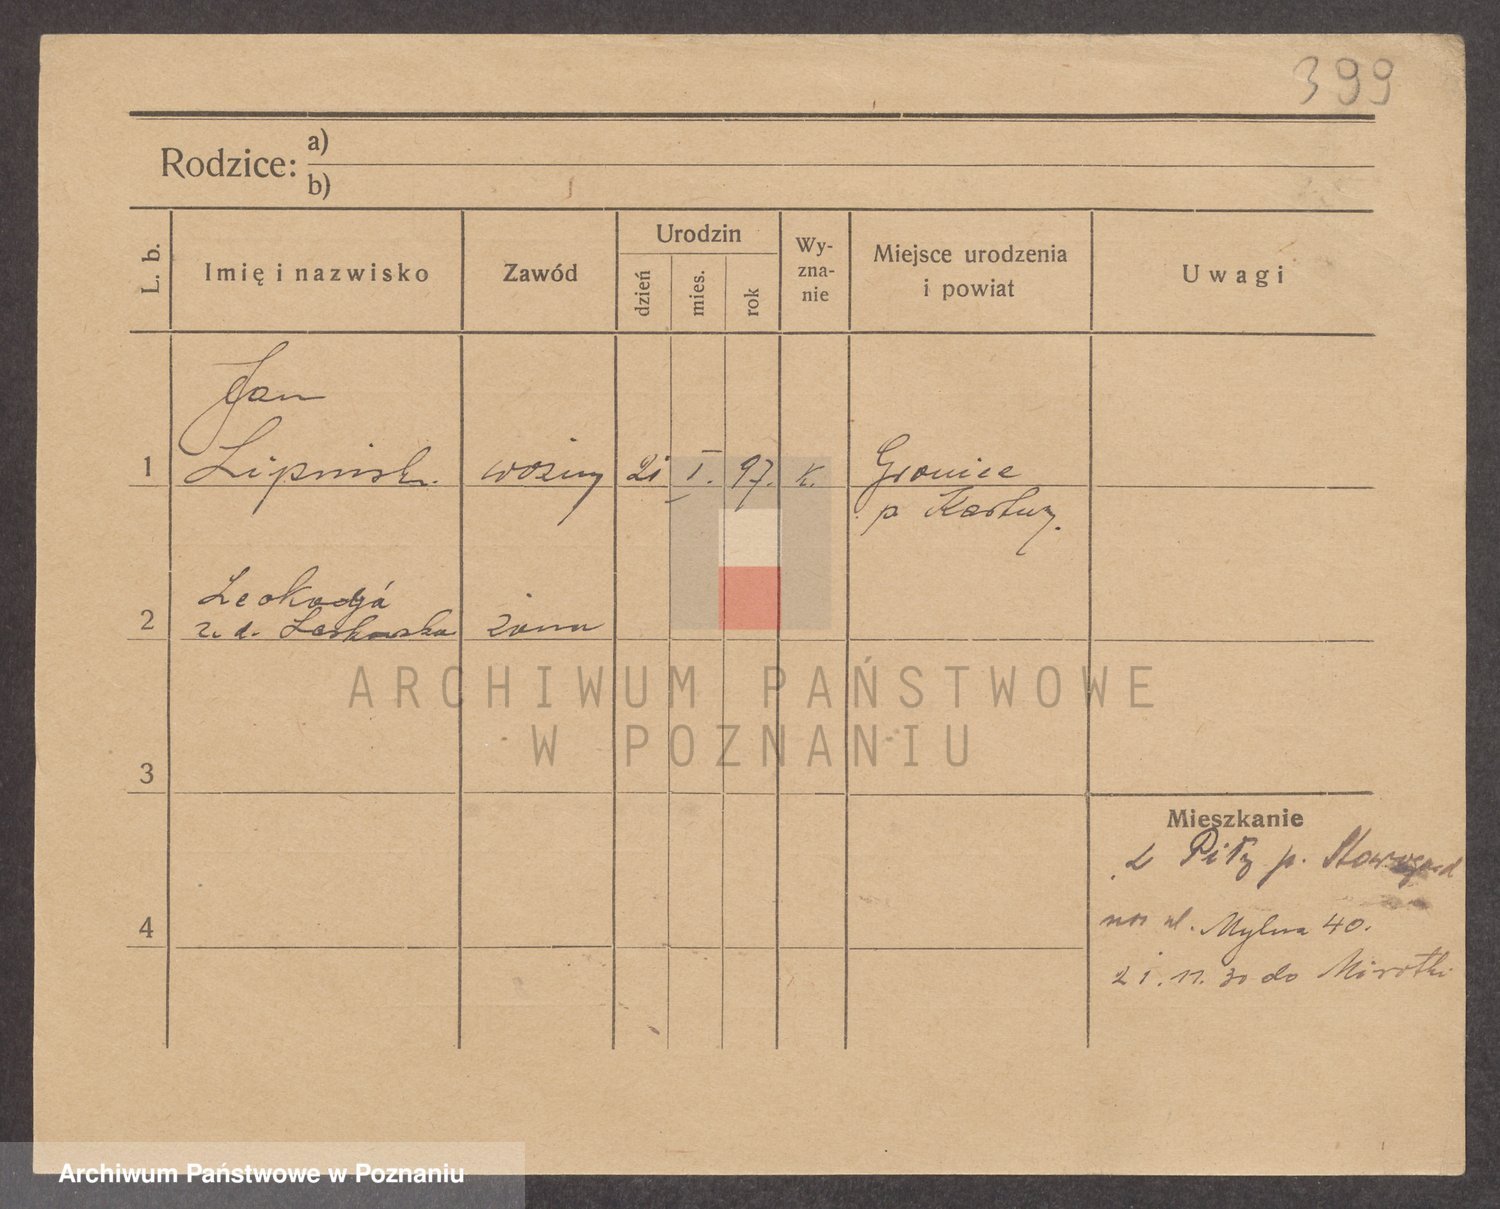 399
Rodzice: a)
b)
L. b.
Imię i nazwisko
Zawód
Urodzin
dzień
mies.
rok
Wy-
zna-
nie
Miejsce urodzenia
i powiat
Uwagi
Jan
1 Lipinsk. woźny 21 I. 97. k.
p Kartuzy.
2 Leokadja
z. d. Laskowska żona
ARCHIWUM PAŃSTWOWE
W POZNANIU
3
Mieszkanie
z Piły p. Starogard
4 ul. Mylna 40.
21. 11. 30 do Mirotki
Archiwum Państwowe w Poznaniu